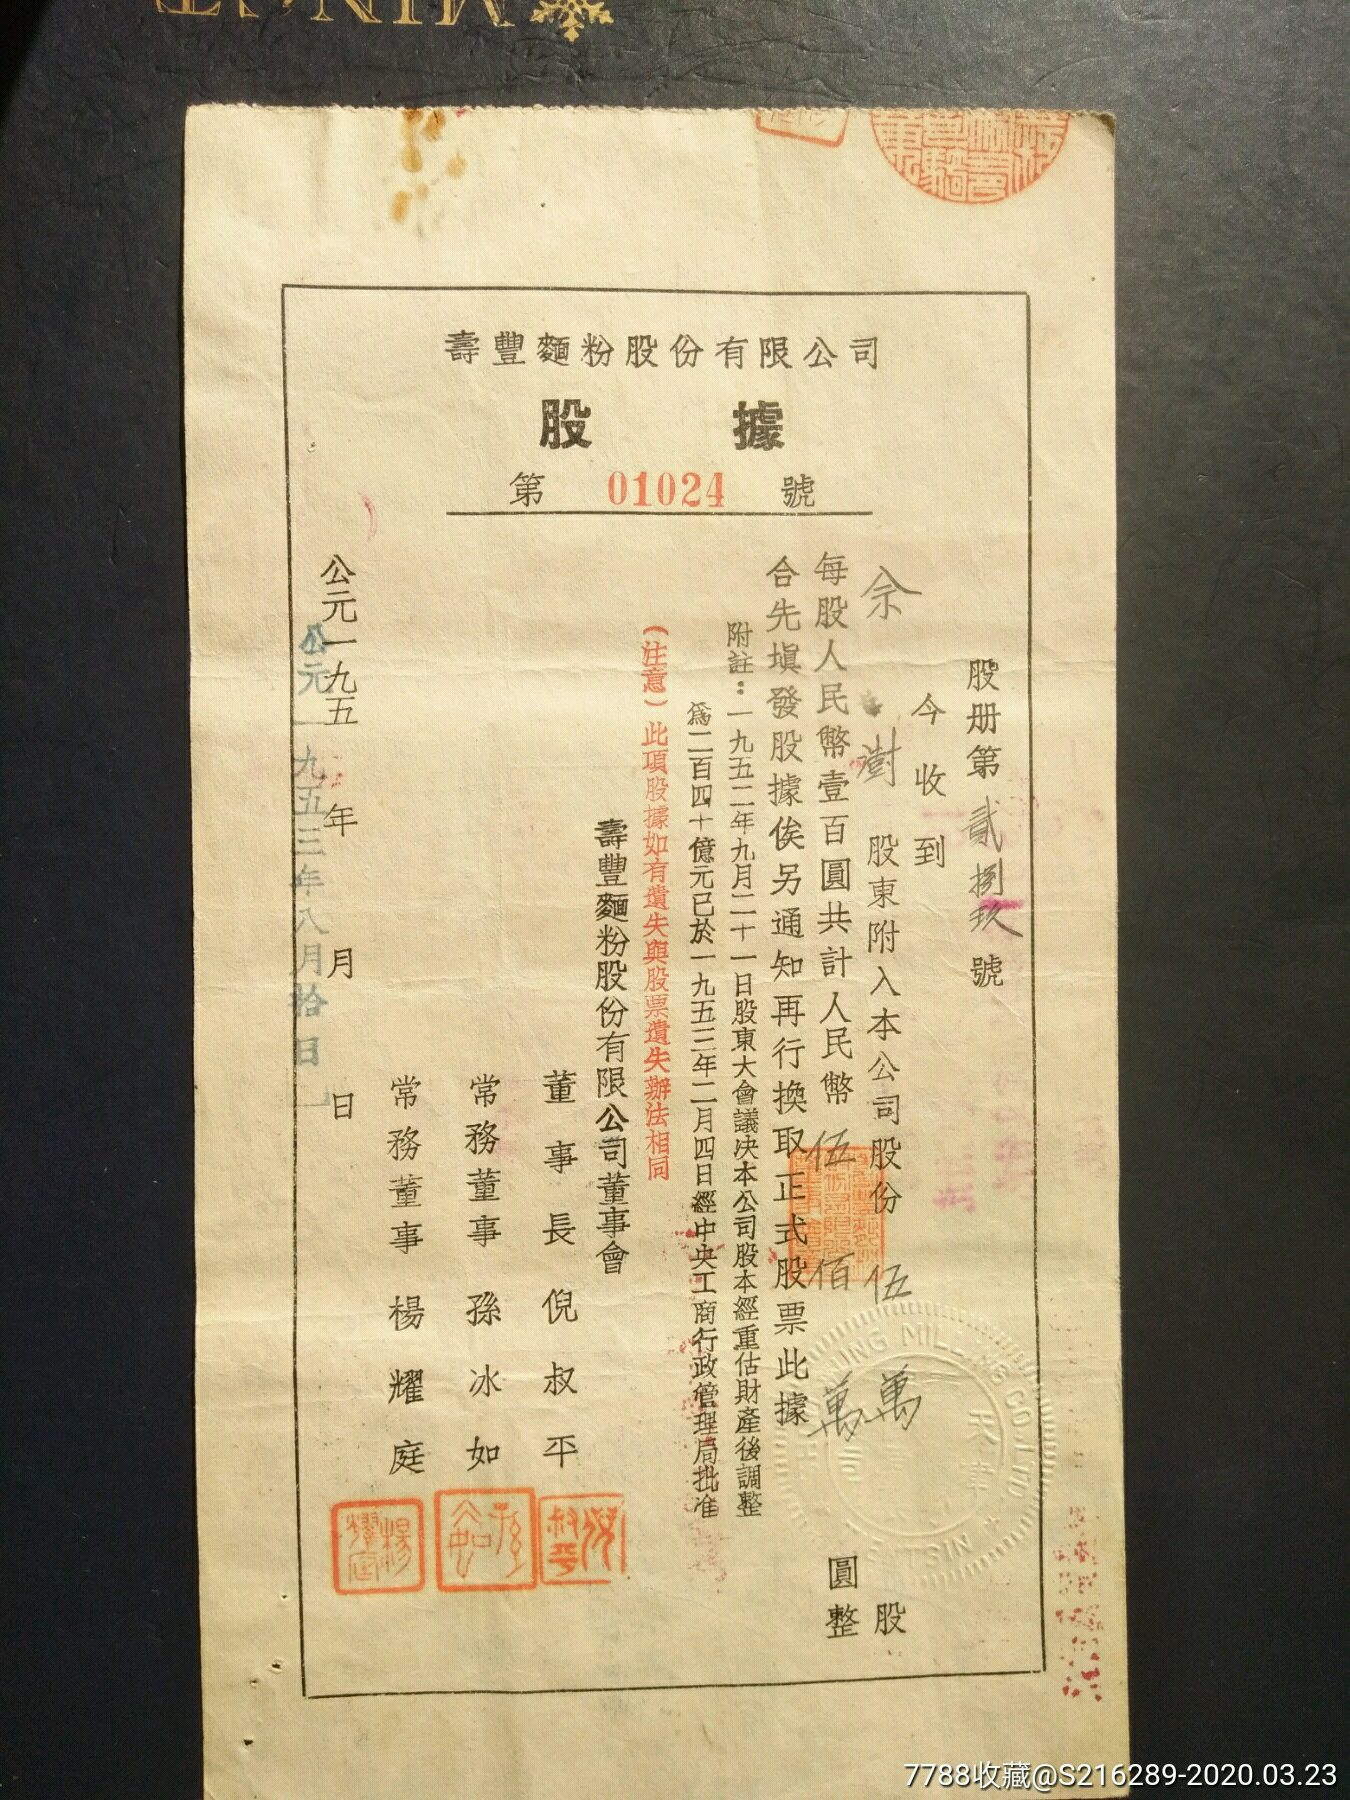 壽豐麵粉股份有限公司
股據
第 01024 號
股册第貳捌玖號
今收到
佘澍 股東附入本公司股份 伍萬 股
每股人民幣壹百圓共計人民幣 伍佰萬 圓整
合先塡發股據俟另通知再行換取正式股票此據
附註：一九五二年九月二十一日股東大會議决本公司股本經重估財產後調整
爲二百四十億元已於一九五三年二月四日經中央工商行政管理局批准
（注意）此項股據如有遺失與股票遺失辦法相同
壽豐麵粉股份有限公司董事會
董事長 倪叔平
常務董事 孫冰如
常務董事 楊耀庭
公元一九五 年 月 日
公元一九五三年八月拾日
MILLING CO. LTD
天津
7788收藏@S216289-2020.03.23